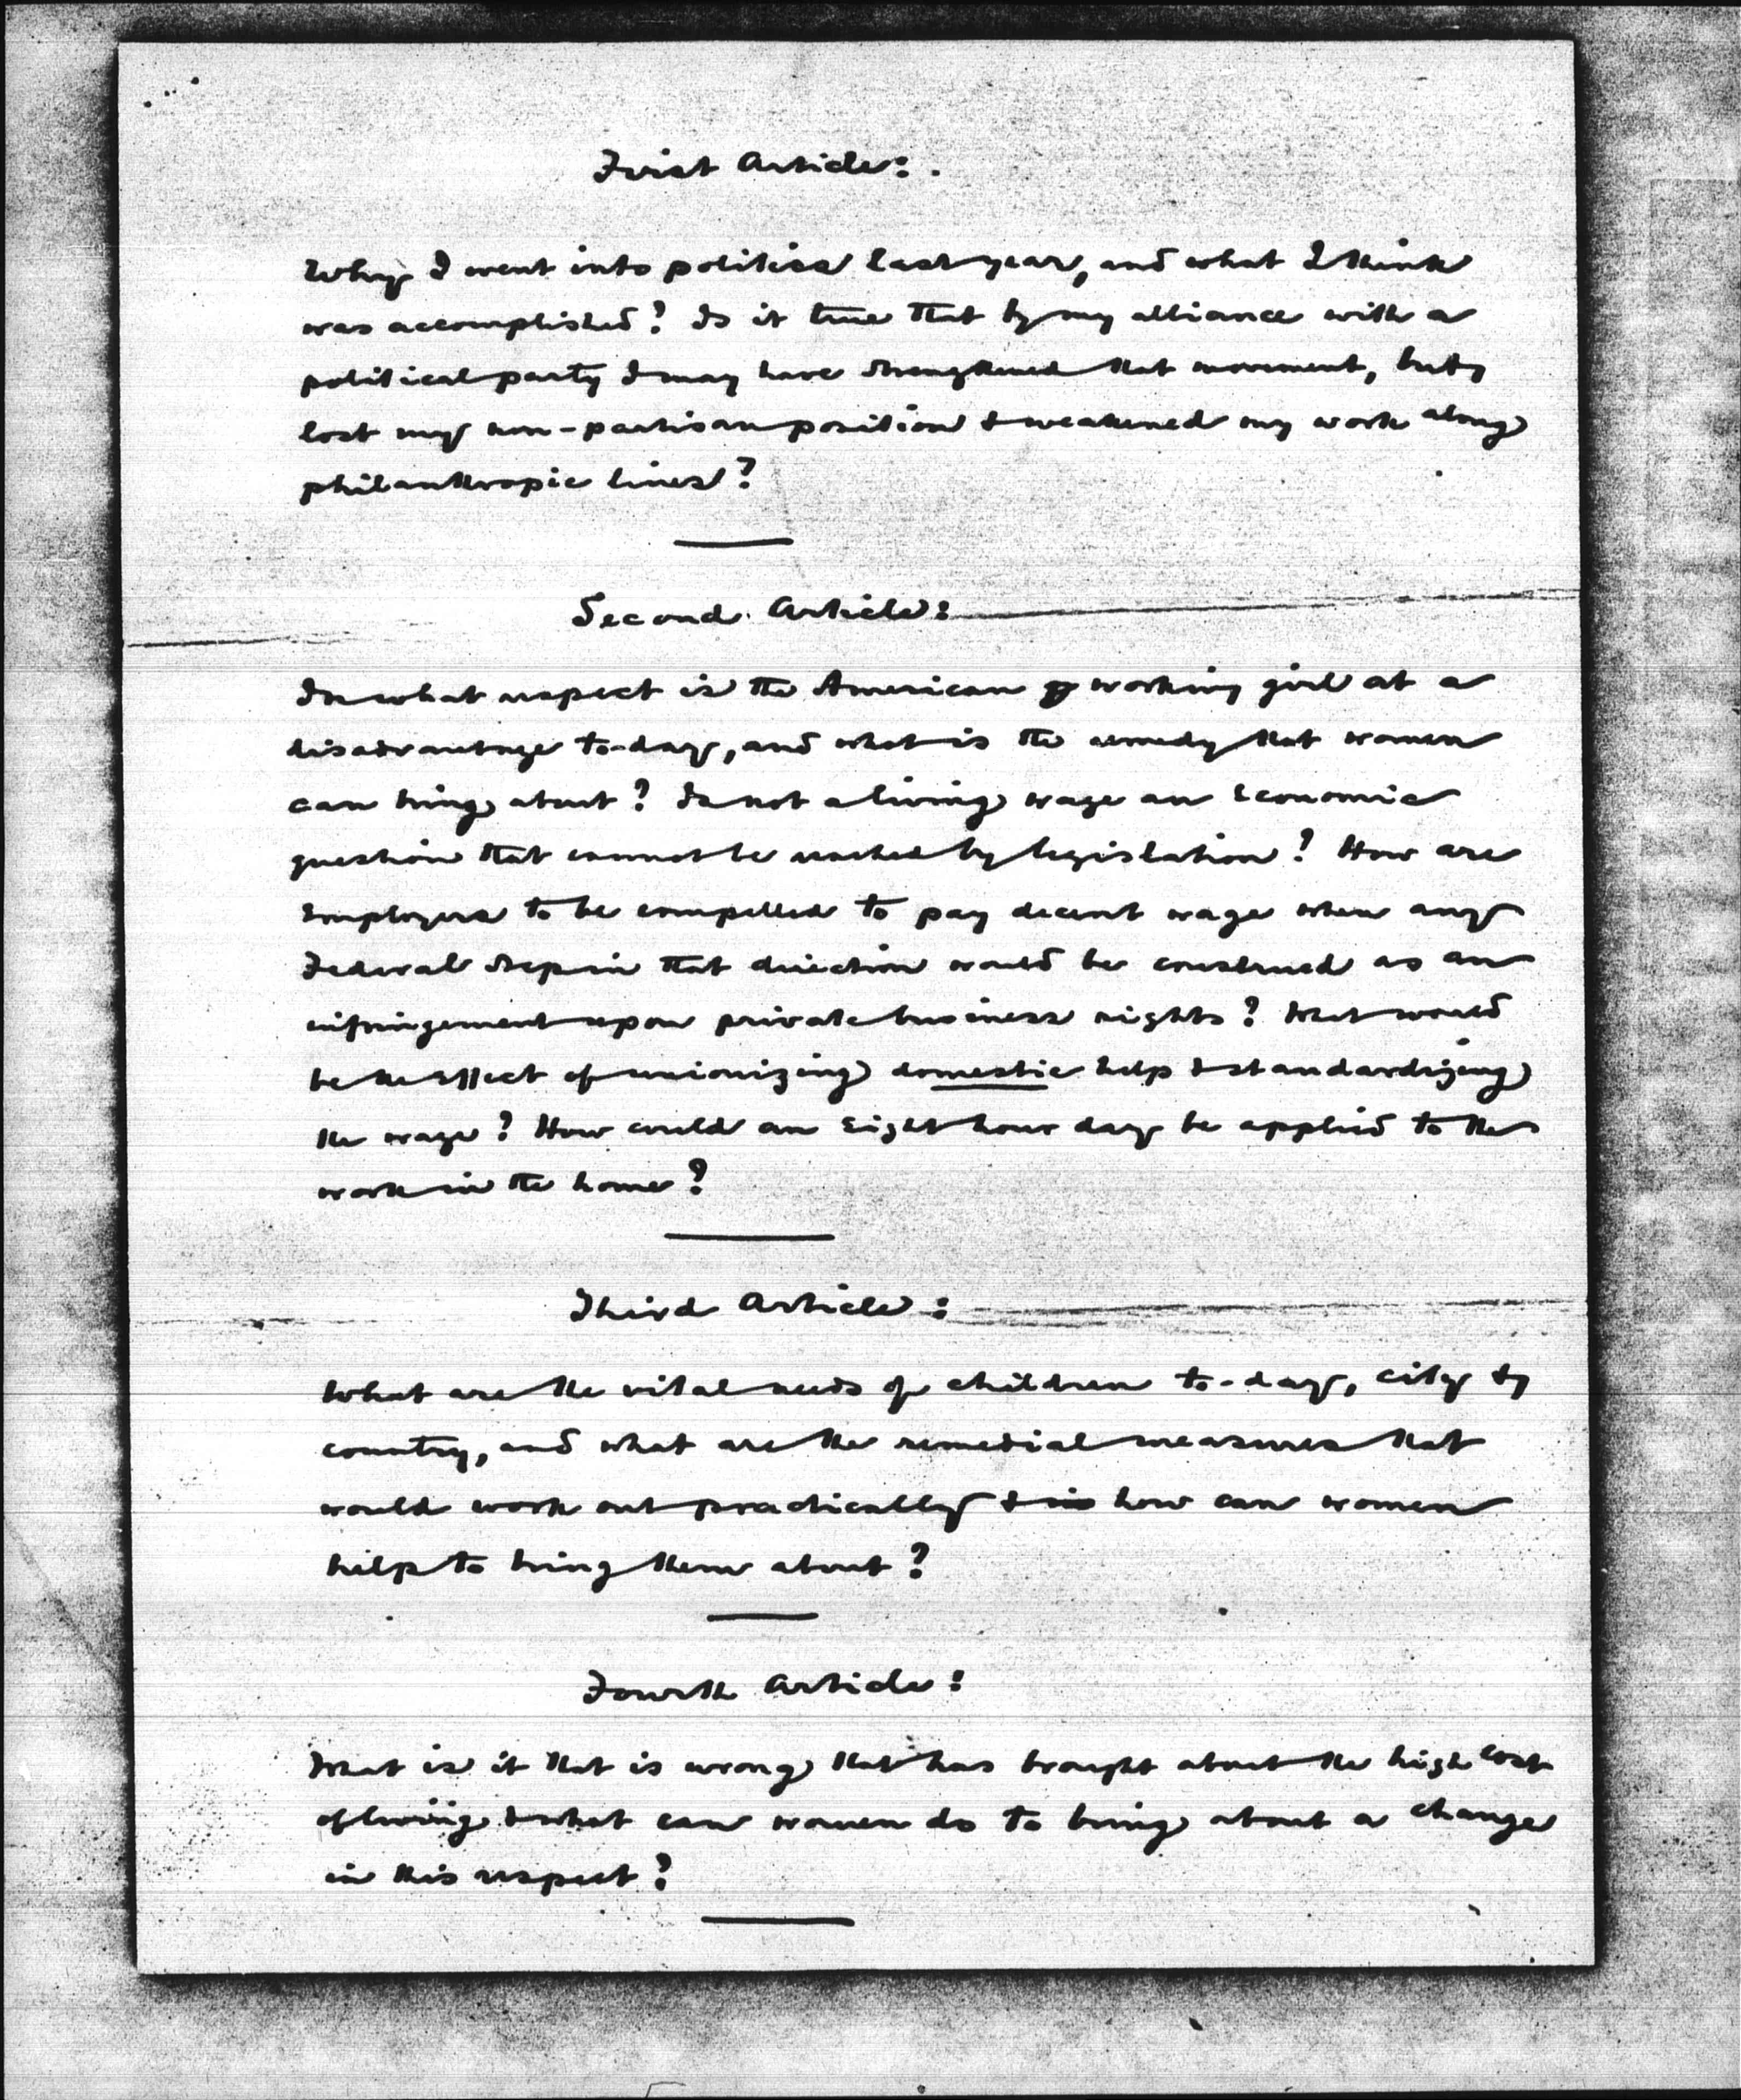 First Article:
Why I went into politics last year, and what I think
was accomplished? Is it true that by my alliance with a
political party I may have strengthened that movement, but
lost my non-partisan position & weakened my work along
philanthropic lines?
Second Article:
In what respect is the American working girl at a
disadvantage to-day, and what is the remedy that women
can bring about? Is not a living wage an economic
question that cannot be reached by legislation? How are
employers to be compelled to pay decent wage when any
Federal step in that direction would be construed as an
infringement upon private business rights? What would
be the effect of unionizing domestic help & standardizing
the wage? How could an eight hour day be applied to the
work in the home?
Third Article:
What are the vital needs of children to-day, city &
country, and what are the remedial measures that
would work out practically & how can women
help to bring them about?
Fourth Article:
What is it that is wrong that has brought about the high cost
of living & what can women do to bring about a change
in this respect?